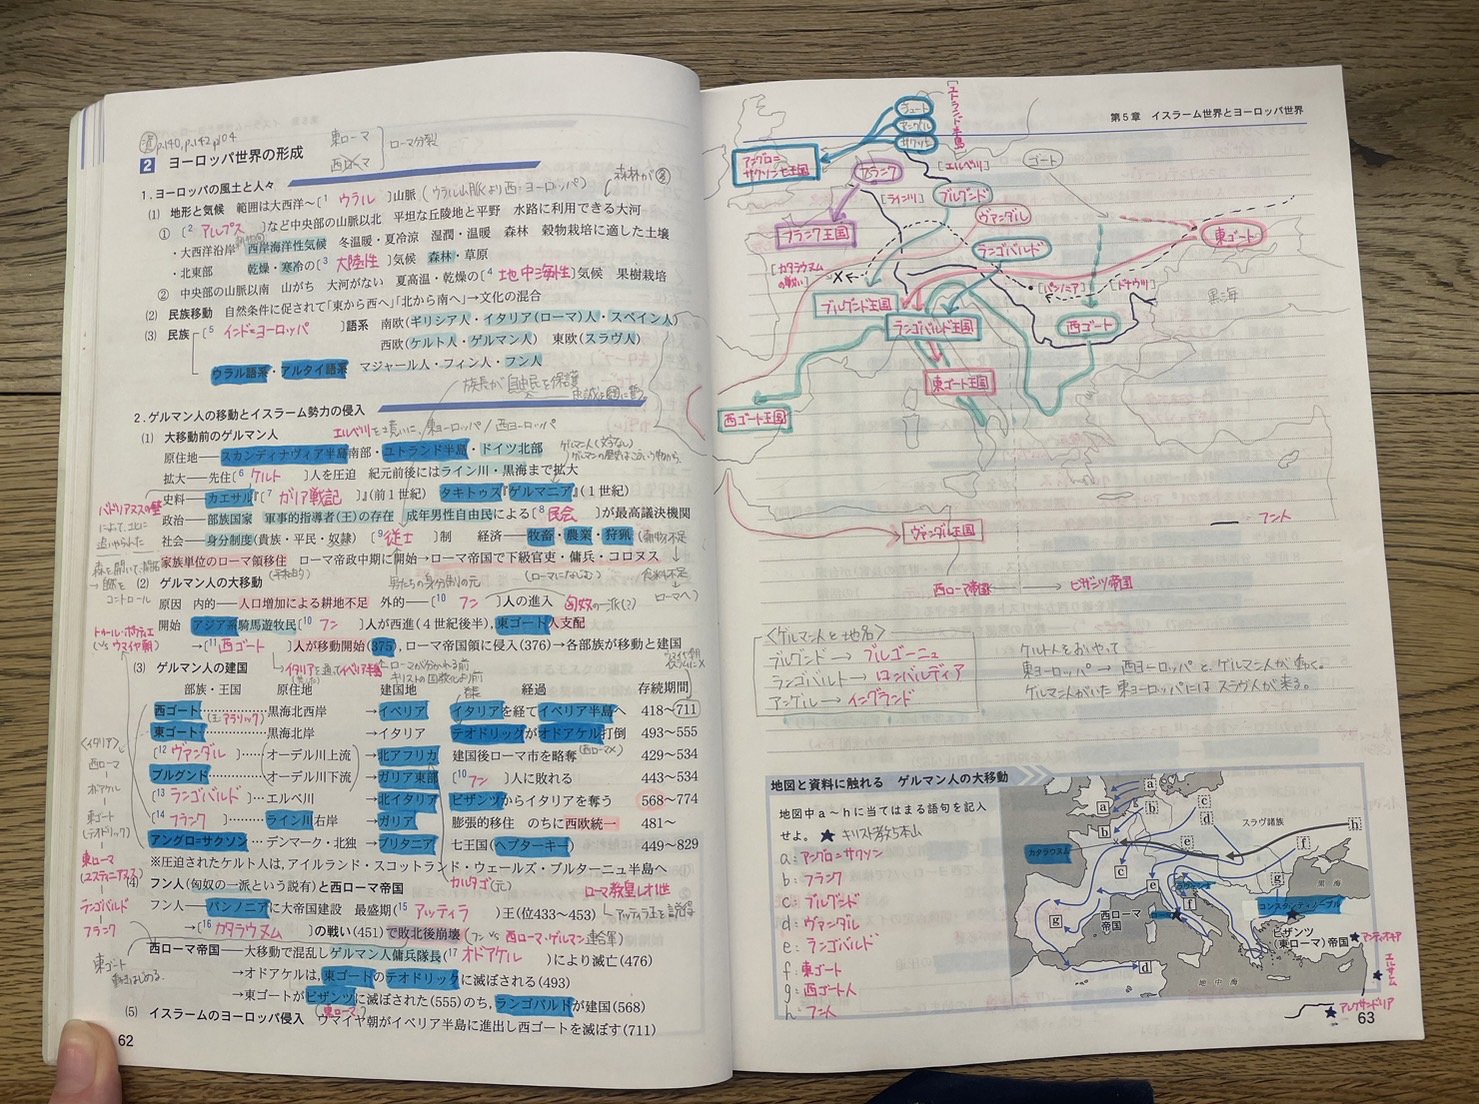 p.140, p.142, p104
東ローマ
西ローマ
ローマ分裂
2 ヨーロッパ世界の形成
1. ヨーロッパの風土と人々
森林が多
(1) 地形と気候 範囲は大西洋〜〔1 ウラル 〕山脈 (ウラル山脈より西=ヨーロッパ)
① 〔2 アルプス 〕など中央部の山脈以北 平坦な丘陵地と平野 水路に利用できる大河
・大西洋沿岸 西岸海洋性気候 冬温暖・夏冷涼 湿潤・温暖 森林 穀物栽培に適した土壌
・北東部 乾燥・寒冷の〔3 大陸性 〕気候 森林・草原
② 中央部の山脈以南 山がち 大河がない 夏高温・乾燥の〔4 地中海性 〕気候 果樹栽培
(2) 民族移動 自然条件に促されて「東から西へ」「北から南へ」→文化の混合
(3) 民族 〔5 インド=ヨーロッパ 〕語系 南欧(ギリシア人・イタリア(ローマ)人・スペイン人)
西欧(ケルト人・ゲルマン人) 東欧(スラヴ人)
ウラル語系・アルタイ語系 マジャール人・フィン人・フン人
族長が自由民を保護
2. ゲルマン人の移動とイスラーム勢力の侵入
(1) 大移動前のゲルマン人 エルベ川を境に、東ヨーロッパ/西ヨーロッパ
原住地―スカンディナヴィア半島南部・ユトランド半島・ドイツ北部
ゲルマン人(文字なし)
拡大―先住〔6 ケルト 〕人を圧迫 紀元前後にはライン川・黒海まで拡大
史料―カエサル『〔7 ガリア戦記 〕』(前1世紀) タキトゥス『ゲルマニア』(1世紀)
政治―部族国家 軍事的指導者(王)の存在 成年男性自由民による〔8 民会 〕が最高議決機関
社会―身分制度(貴族・平民・奴隷) 〔9 従士 〕制 経済―牧畜・農業・狩猟 (動物不足
家族単位のローマ領移住 ローマ帝政中期に開始→ローマ帝国で下級官吏・傭兵・コロヌス
(平和的)
男たちの身分制の元
(ローマになじむ)
食料不足
ローマへ)
(2) ゲルマン人の大移動
原因 内的―人口増加による耕地不足 外的―〔10 フン 〕人の進入 匈奴の一派(?)
開始 アジア系騎馬遊牧民〔10 フン 〕人が西進(4世紀後半), 東ゴート人支配
→〔11 西ゴート 〕人が移動開始(375), ローマ帝国領に侵入(376)→各部族が移動と建国
イタリアを通ってイベリア半島
ローマが分かれる前
キリストの国教化より前
(3) ゲルマン人の建国
部族・王国 原住地 建国地 経過 存続期間
西ゴート……黒海北西岸 →イベリア イタリアを経てイベリア半島へ 418〜711
(王:アラリック)
東ゴート……黒海北岸 →イタリア テオドリックがオドアケル打倒 493〜555
〔12 ヴァンダル 〕…オーデル川上流 →北アフリカ 建国後ローマ市を略奪 429〜534
ブルグンド……オーデル川下流 →ガリア東部 〔10 フン 〕人に敗れる 443〜534
〔13 ランゴバルド 〕…エルベ川 →北イタリア ビザンツからイタリアを奪う 568〜774
〔14 フランク 〕…ライン川右岸 →ガリア 膨張的移住 のちに西欧統一 481〜
アングロ=サクソン…デンマーク・北独 →ブリタニア 七王国(ヘプターキー) 449〜829
※圧迫されたケルト人は, アイルランド・スコットランド・ウェールズ・ブルターニュ半島へ
(4) フン人(匈奴の一派という説有)と西ローマ帝国 カルタゴ(元) ローマ教皇レオ1世
フン人―パンノニアに大帝国建設 最盛期〔15 アッティラ 〕王(位433〜453) アッティラ王を説得
→〔16 カタラウヌム 〕の戦い(451)で敗北後崩壊 (フン vs 西ローマ・ゲルマン連合軍)
西ローマ帝国―大移動で混乱しゲルマン人傭兵隊長〔17 オドアケル 〕により滅亡(476)
→オドアケルは, 東ゴートのテオドリックに滅ぼされる(493)
→東ゴートがビザンツに滅ぼされた(555)のち, ランゴバルドが建国(568)
(東ローマ)
(5) イスラームのヨーロッパ侵入 ウマイヤ朝がイベリア半島に進出し西ゴートを滅ぼす(711)
によって、北に
追いやられた
コントロール
トゥール・ポワティエ
(vs ウマイヤ朝)
<イタリア>
西ローマ
オドアケル
東ゴート
(テオドリック)
東ローマ
(ユスティニアヌス)
ランゴバルド
フランク
東ゴート
62
第5章 イスラーム世界とヨーロッパ世界
ジュート
アングル
サクソン
[ユトランド半島]
アングロ=
サクソン七王国
フランク
[エルベ川]
ゴート
[ライン川]
ブルグンド
ヴァンダル
フランク王国
ランゴバルド
東ゴート
[カタラウヌム
の戦い]
[パンノニア]
[ドナウ川]
黒海
ブルグンド王国
ランゴバルド王国
西ゴート
東ゴート王国
西ゴート王国
フン人
ヴァンダル王国
西ローマ帝国
ビザンツ帝国
<ゲルマン人と地名>
ブルグンド→ブルゴーニュ
ランゴバルト→ロンバルディア
アングル→イングランド
ケルト人をおいやって
東ヨーロッパ→西ヨーロッパと、ゲルマン人が動く。
ゲルマン人がいた東ヨーロッパにはスラヴ人が来る。
地図と資料に触れる ゲルマン人の大移動
地図中a〜hに当てはまる語句を記入
せよ。 ★キリスト教5本山
a:アングロ=サクソン
b:フランク
c:ブルグンド
d:ヴァンダル
e:ランゴバルド
f:東ゴート
g:西ゴート人
h:フン人
スラヴ諸族
カタラウヌム
黒海
コンスタンティノープル
西ローマ
帝国
ローマ
ビザンツ
(東ローマ)帝国
アンティオキア
エルサレム
地中海
アレクサンドリア
63